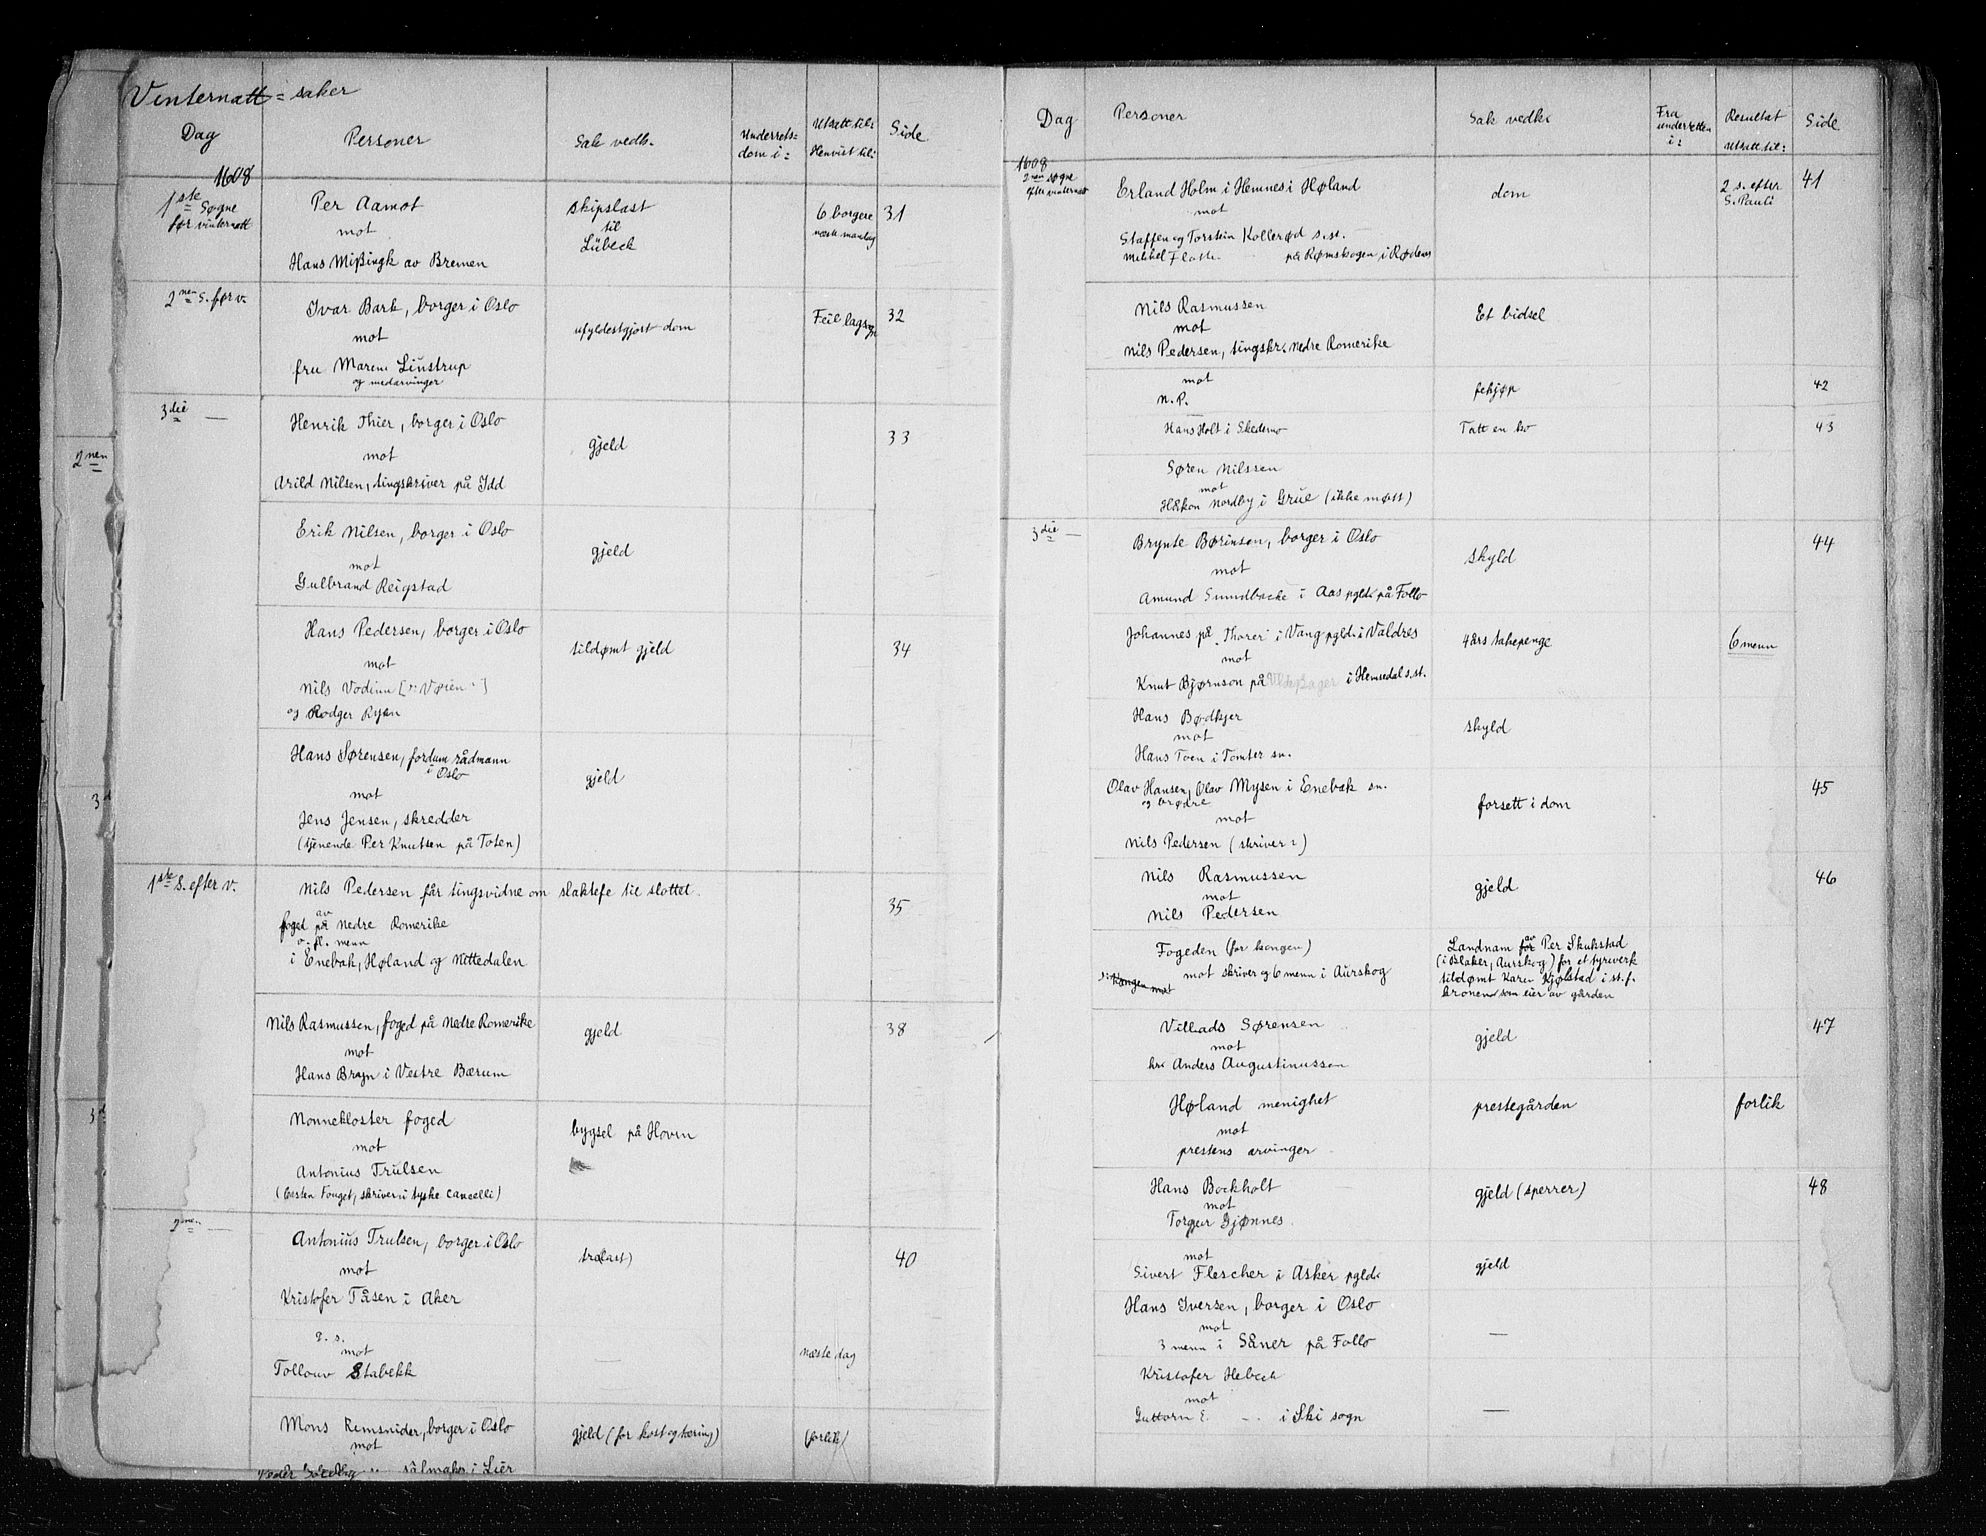 Vinternatt = saker
Dag
Personer
Sak vedk.
Underrets=
dom i:
Utsatt til:
Henvist til:
Side
1608
1ste Søgne
før vinternatt
Per Aamot
mot
Hans Mißingk av Bremen
skipslast
til
Lübeck
6 borgere
næste mandag
31
2nen S. før v.
Ivar Bark, borger i Oslo
mot
fru Maren Linstrup
og medarvinger
ufyldestgjort dom
Feil lagsøgn
32
3die —
Henrik Thier, borger i Oslo
mot
Arild Nilsen, tingskriver på Idd
gjeld
33
Erik Nilsen, borger i Oslo
mot
Gulbrand Reigstad
gjeld
Hans Pedersen, borger i Oslo
mot
Nils Vodinn [ɔ: Vøien]
og Rodger Ryen
tildømt gjeld
34
Hans Sørensen, fordum rådmann
i Oslo
mot
Jens Jensen, skredder
(tjenende Per Knutsen på Toten)
gjeld
1ste S. efter v.
Nils Pedersen får tingsvidne om slaktefe til slottet.
foged på av Nedre Romerike
o. fl. menn
i Enebak, Høland og Nittedalen
35
Nils Rasmussen, foged på Nedre Romerike
mot
Hans Bryn i Vestre Bærum
gjeld
38
Nonnekloster foged
mot
Antonius Trulsen
(Casten Fouget, skriver i tyske cancelli)
bygsel på Hovin
2nen —
Antonius Trulsen, borger i Oslo
mot
Kristofer Tåsen i Aker
tra(last)
40
s. s.
mot
Tollouv Stabekk
—
næste dag
Mons Remsnider, borger i Oslo
mot
Peder i Lier
gjeld (for kost og tæring)
(forlik)
2nen
3d
3d
Dag
Personer
Sak vedk.
Fra
underretten
i:
Resultat
Utsatt til:
Side
1608
2nen søgne
efter vinternatt
Erland Holm i Hemnes i Høland
mot
Staffen og Torstein Kollerød s.st.
Mikkel Flatte — på Rømskogen i Rødenes
dom
2 s. efter
S. Pauli
41
Nils Rasmussen
mot
Nils Pedersen, tingskr. Nedre Romerike
Et bidsel
mot
N. P.
fekjøp
42
Hans Holt i Skedsmo
Tatt en ko
43
Søren Nilssen
mot
Håkon Nordby i Grue (ikke møtt)
3die —
Brynte Børinson, borger i Oslo
mot
Amund Sundbacke i Aas pgld. på Follo
skyld
44
Johannes på Thorer i Vang pgld. i Valdres
mot
Knut Bjørnson på i Hemsedal s.st.
4 års takepenge
6 menn
Hans Bødkjer
mot
Hans Toen i Tomter sn.
skyld
Olav Hansen, Olav Mysen i Enebak sn.
og brødre
mot
Nils Pedersen (skriver?)
forsett i dom
45
Nils Rasmussen
mot
Nils Pedersen
gjeld
46
Fogeden (for kongen)
mot skriver og 6 menn i Aurskog
ɔ: Kongen mot
Landnam for av Per Skukstad
(i Blaker, Aurskog) for et tyreverk
tildømt Karen Kjølstad i st. f.
kronen som eier av gården
Villads Sørensen
mot
hr. Anders Augustinussen
gjeld
47
Høland menighet
mot
prestens arvinger
prestegården
forlik
Hans Bockholt
mot
Torger Gjønnes
gjeld (sperrer)
48
mot
Sivert Flescher i Asker pgld.
gjeld
Hans Iversen, borger i Oslo
mot
3 menn i Såner på Follo
—
Kristofer Hebeck
mot
Guttorm E. — i Ski sogn
—